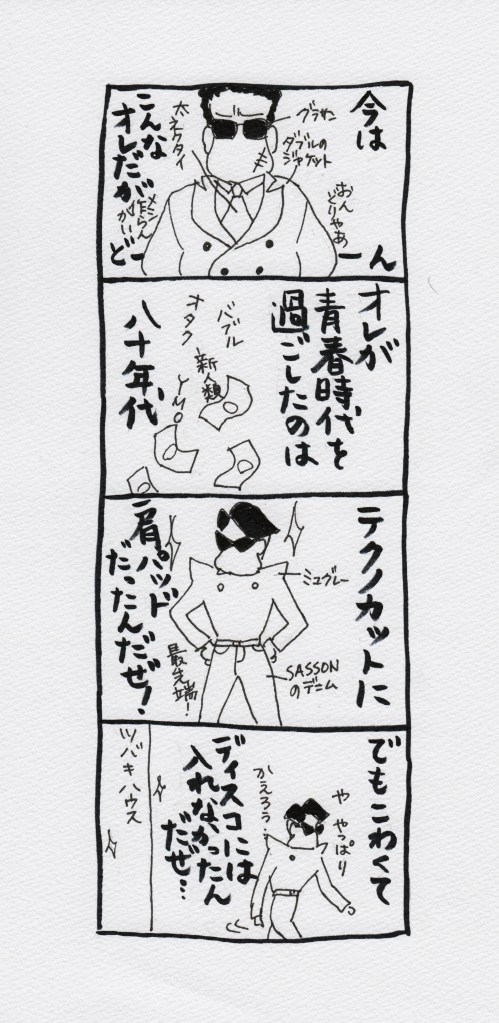 今は
こんな
オレだが
グラサン
ダブルの
ジャケット
太ネクタイ
おん
どりゃあ
どーん
オレが
青春時代を
過ごしたのは
八十年代
バブル
新人類
オタク
YMO
テクノカットに
肩パッド
だったんだぜ!
ミュグレー
SASSON
のデニム
最先端!
でもこわくて
ディスコには
入れなかったん
だぜ…
や やっぱり
かえろう…
ツバキハウス